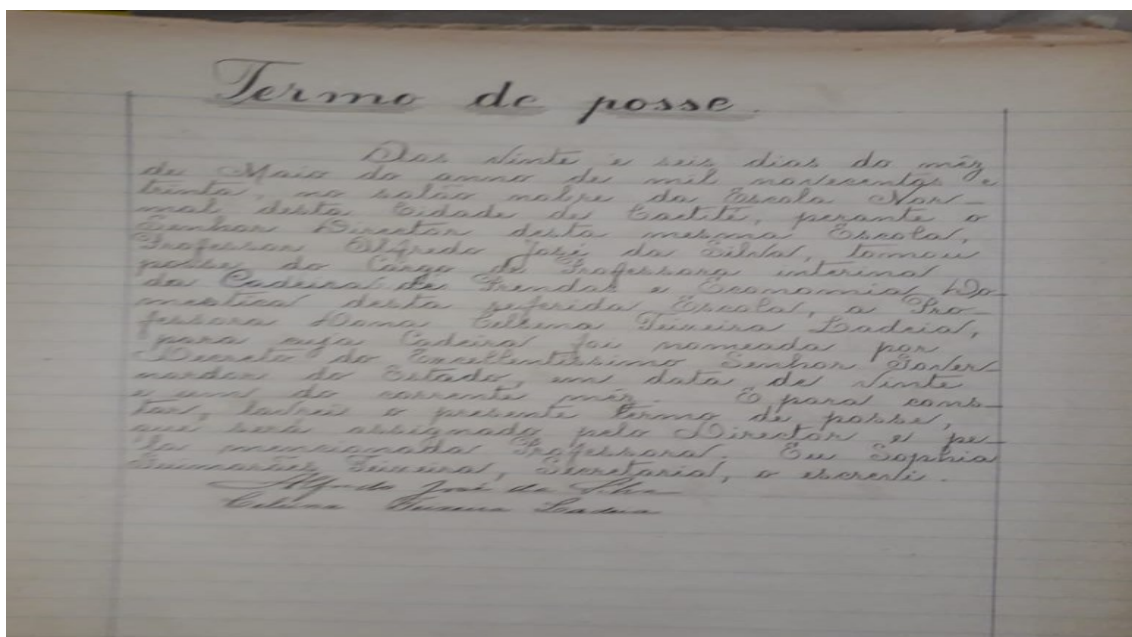 Termo de posse.
Aos vinte e seis dias do mêz
de Maio do anno de mil novecentos e
trinta, no salão nobre da Escola Nor-
mal desta Cidade de Caetité, perante o
Senhor Director desta mesma Escola,
Professor Alfredo José da Silva, tomou
posse do Cargo de Professora interina
da Cadeira de Prendas e Economia Do-
mestica desta referida Escola, a Pro-
fessora Dona Celsina Teixeira Ladeia,
para cuja Cadeira foi nomeada por
Decreto do Excellentissimo Senhor Gover-
nardor do Estado, em data de vinte
e um do corrente mêz. E para cons-
tar, lavrei o presente termo de posse,
que será assignado pelo Director e pe-
la mencionada Professora. Eu Sophia
Guimarães Teixeira, Secretaria, o escrevi.
Alfredo José da Silva
Celsina Teixeira Ladeia